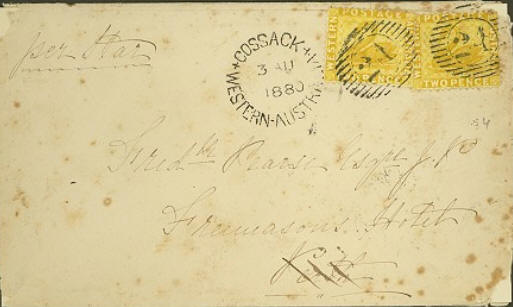 per Star
COSSACK
3 AU
1880
WESTERN-AUSTR
WESTERN POSTAGE
TWO PENCE
21
POSTAGE
TWO PENCE
21
Fredk Pearse Esqre J.P.
Freemasons Hotel
Perth